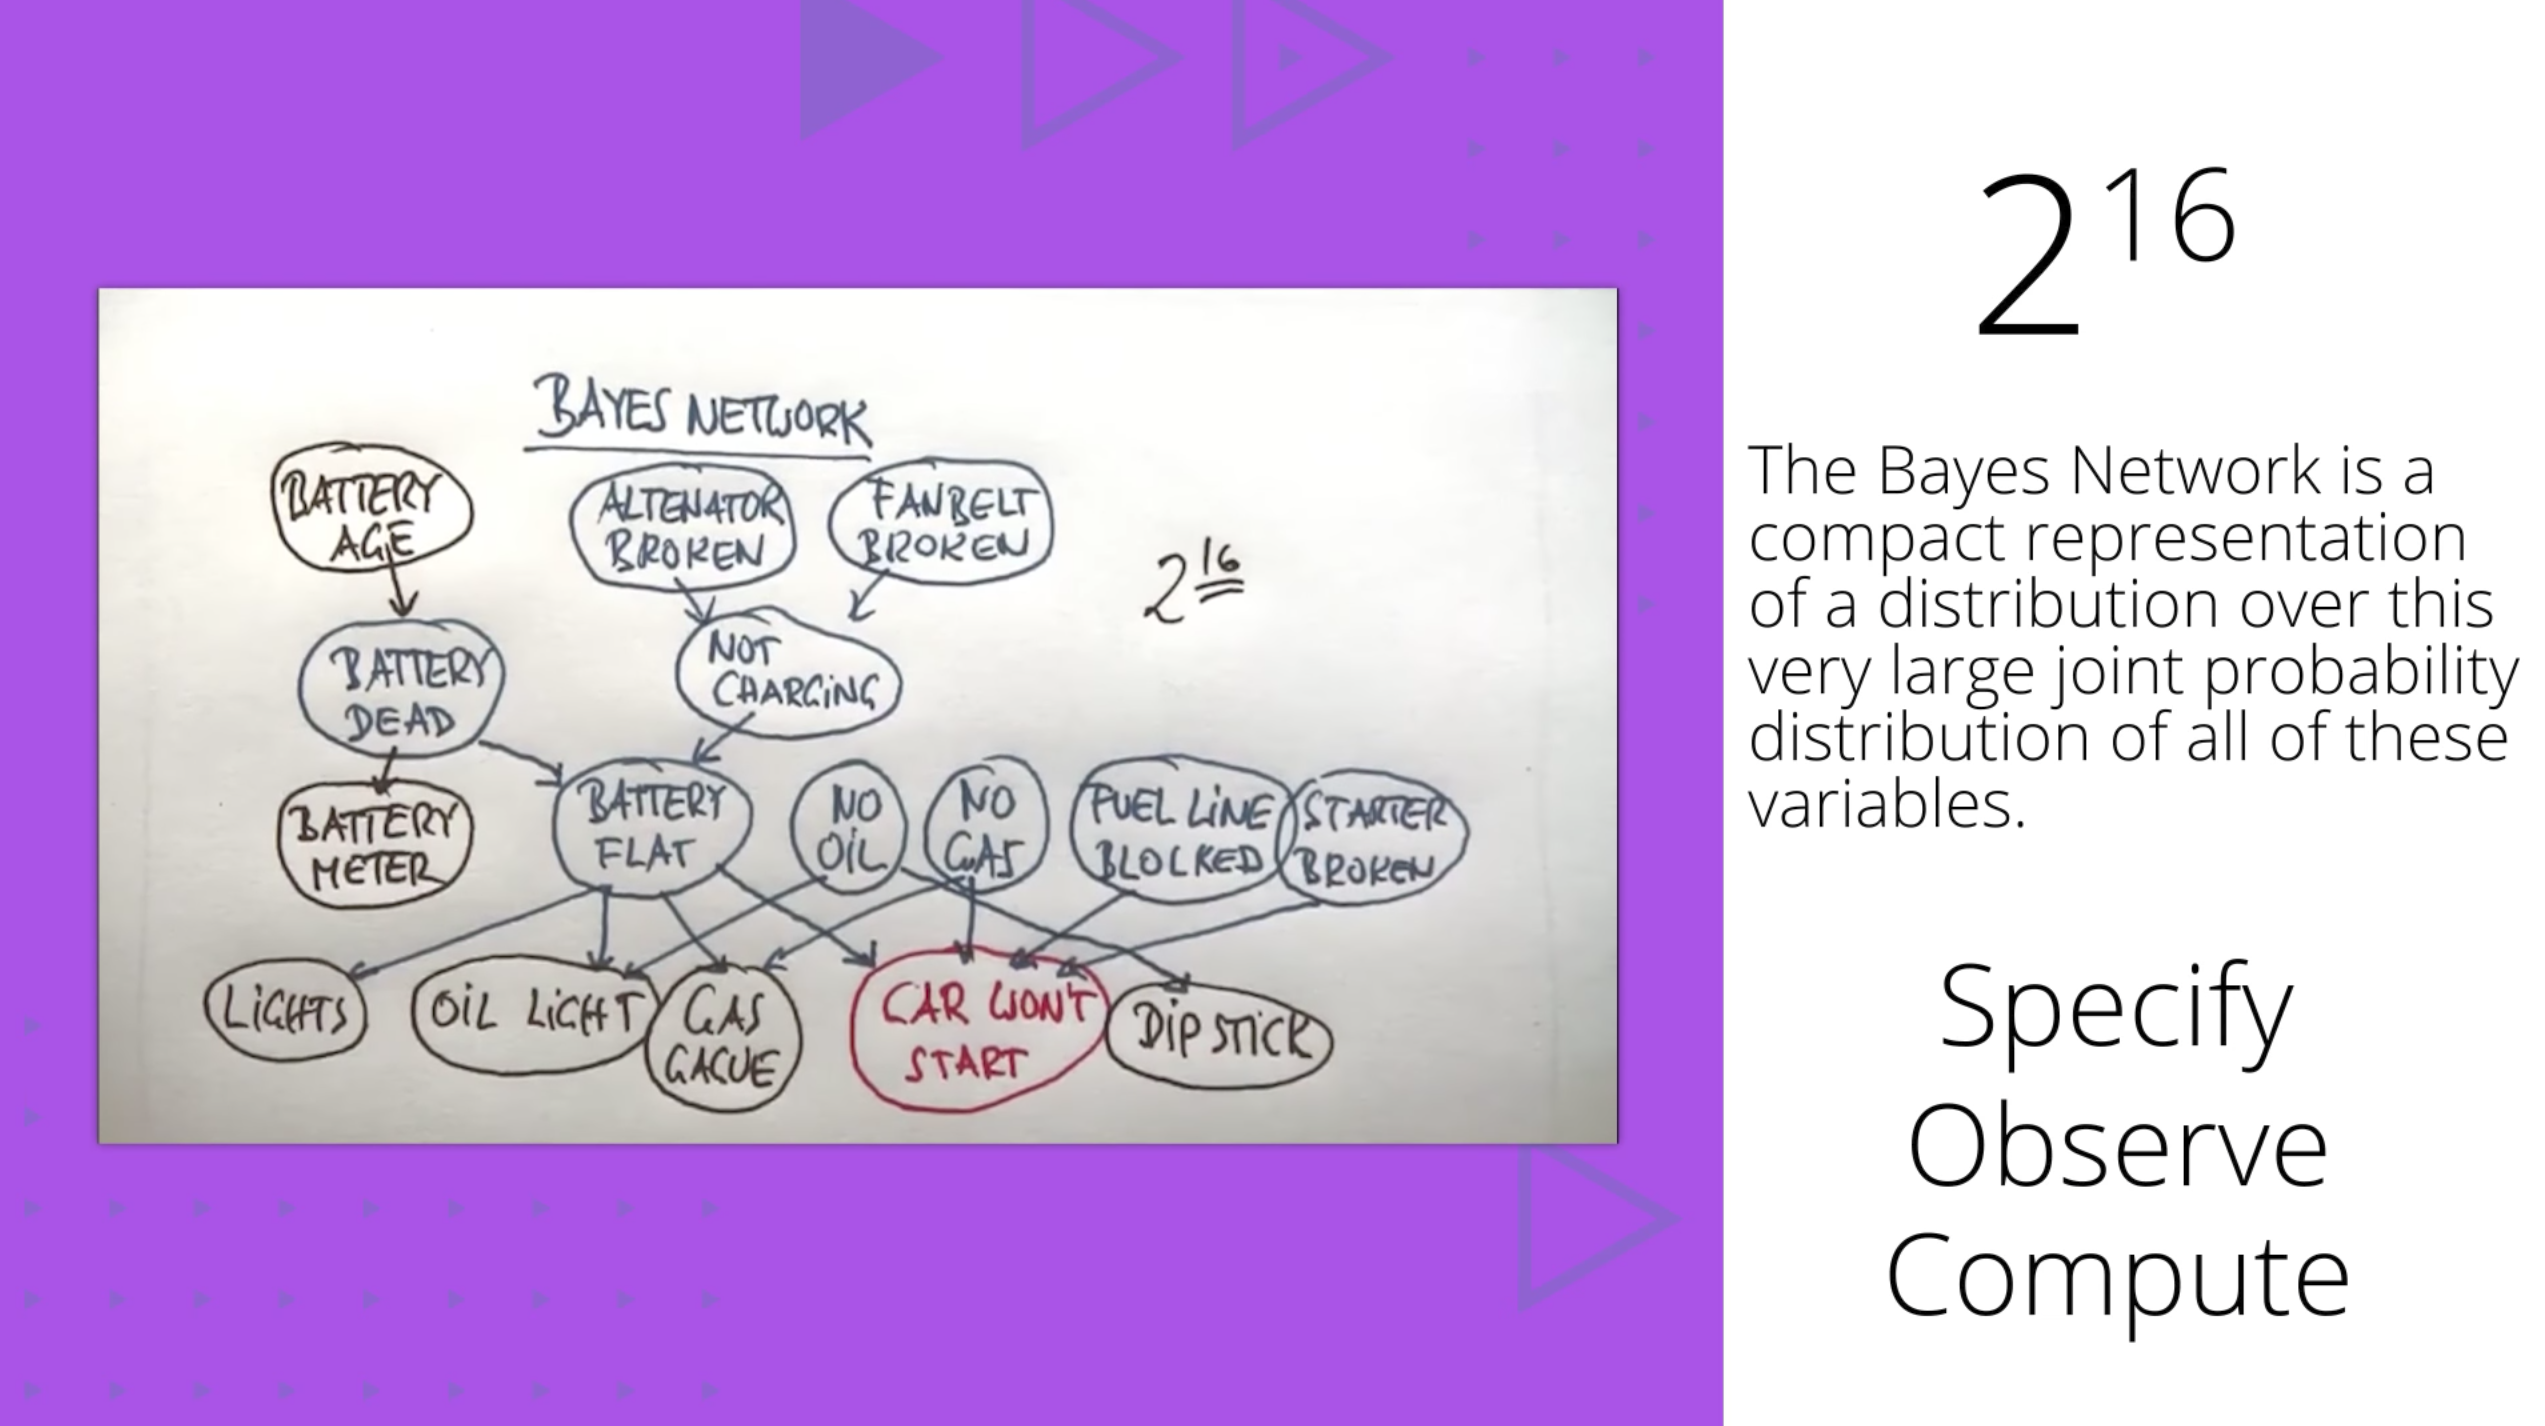 BAYES NETWORK
BATTERY
AGE
ALTENATOR
BROKEN
FANBELT
BROKEN
2^16
BATTERY
DEAD
NOT
CHARGING
BATTERY
METER
BATTERY
FLAT
NO
OIL
NO
GAS
FUEL LINE
BLOCKED
STARTER
BROKEN
LIGHTS
OIL LIGHT
GAS
GAGUE
CAR WON'T
START
DIP STICK
2^16
The Bayes Network is a
compact representation
of a distribution over this
very large joint probability
distribution of all of these
variables.
Specify
Observe
Compute